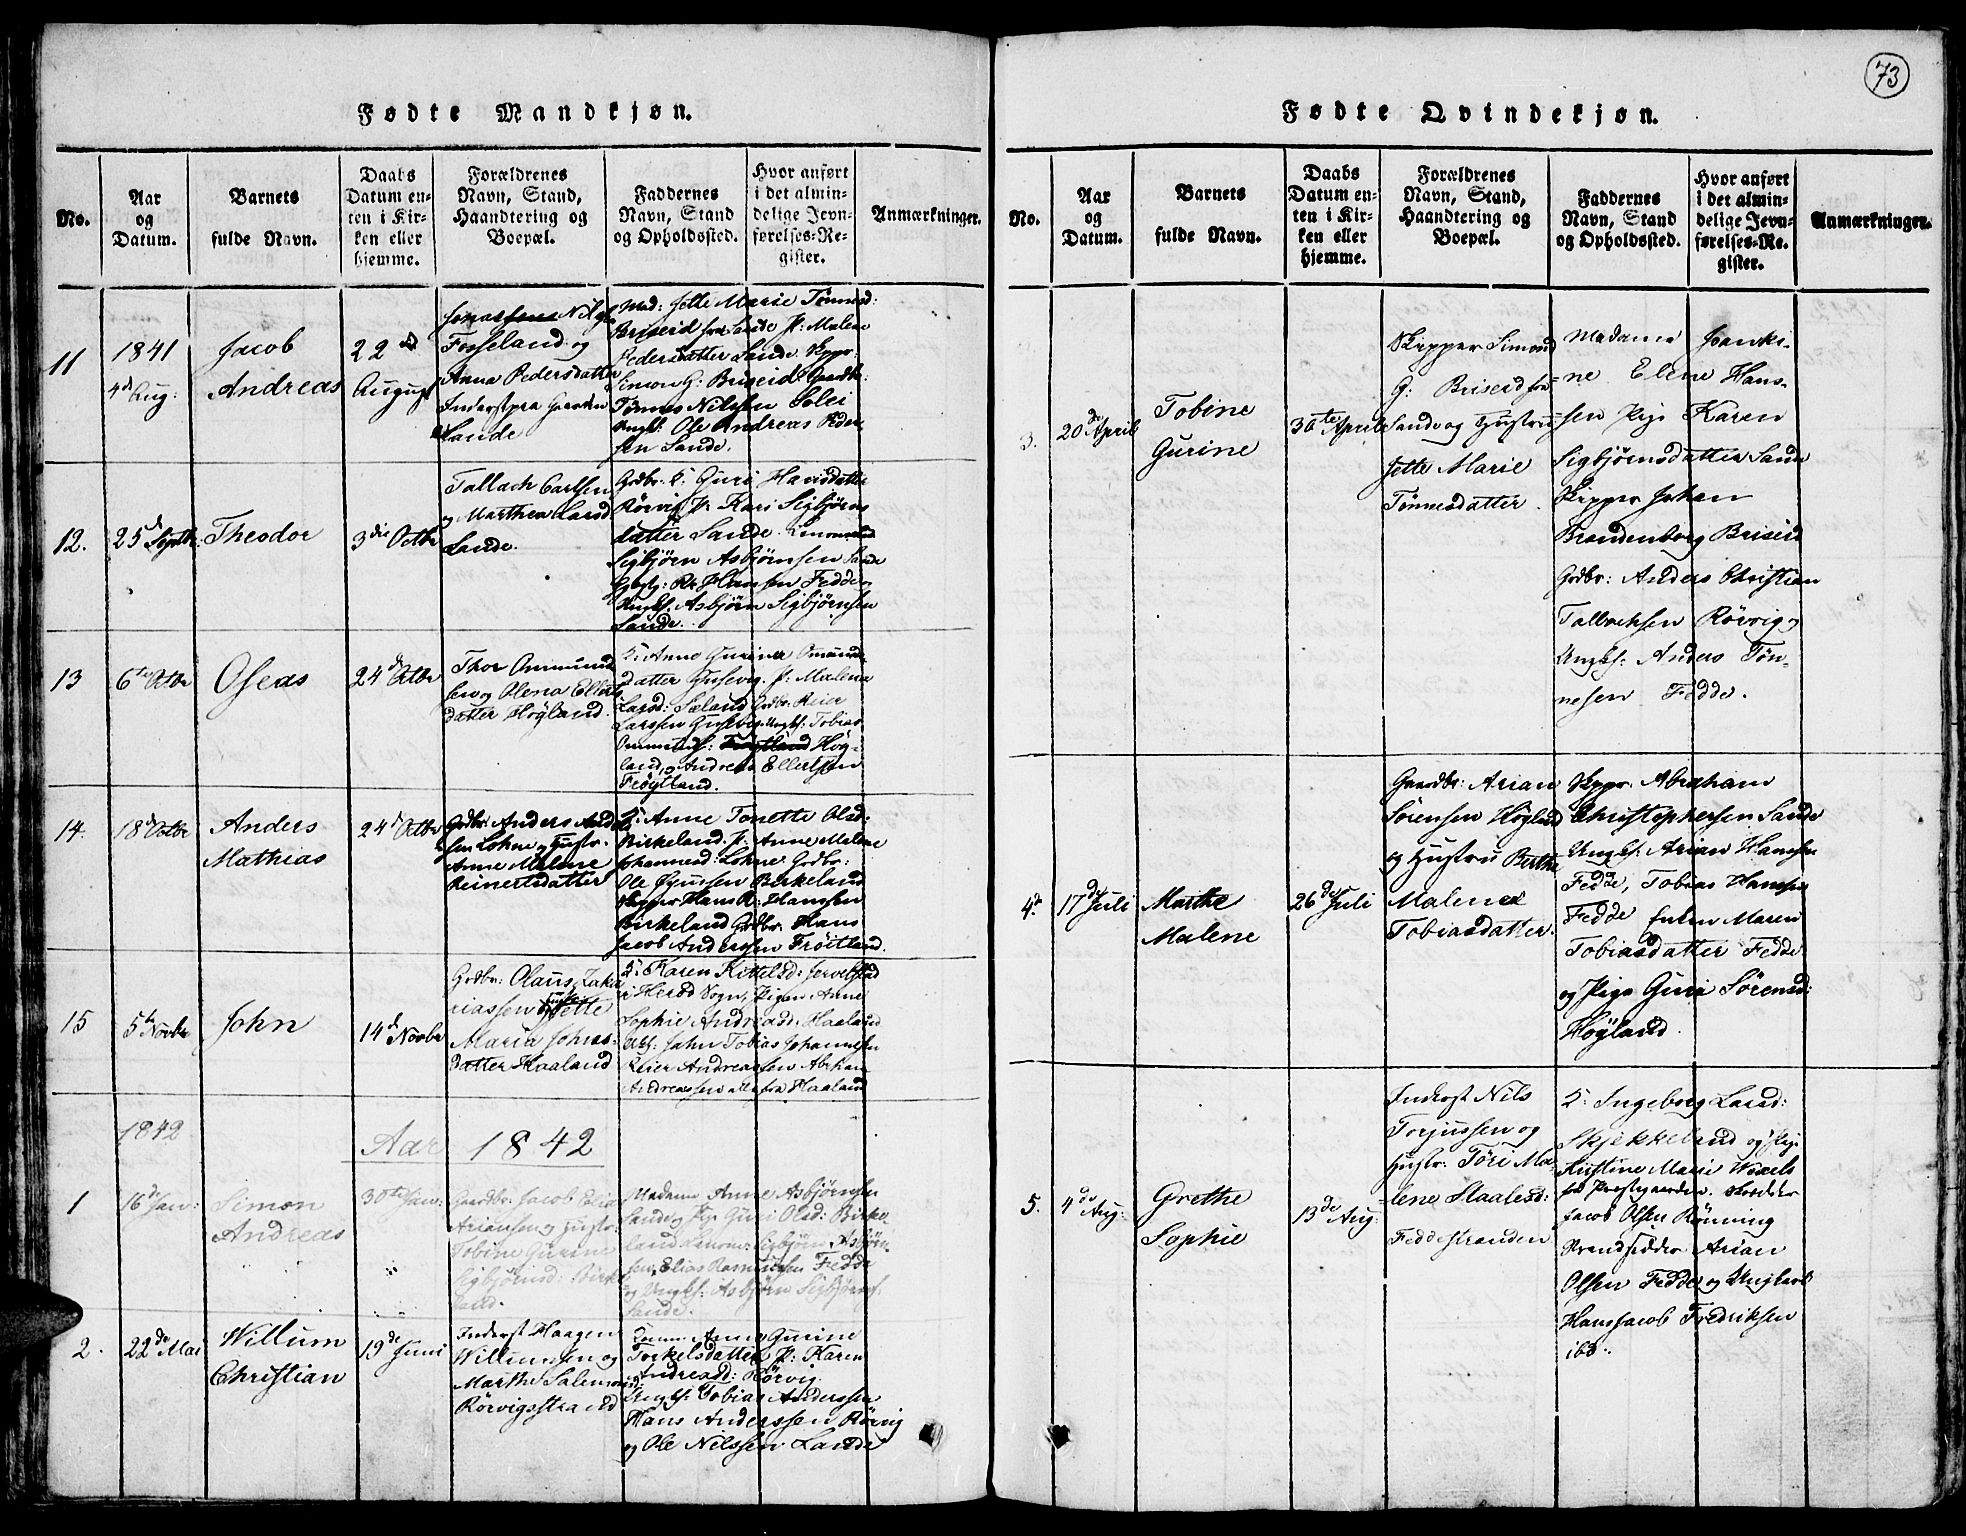 73
Fødte Mandkjøn.
No.
Aar
og
Datum.
Barnets
fulde Navn.
Daabs
Datum en-
ten i Kir-
ken eller
hjemme.
Forældrenes
Navn, Stand,
Haandtering og
Boepæl.
Faddernes
Navn, Stand
og Opholdssted.
Hvor anført
i det almin-
delige Jevn-
førelses-Re-
gister.
Anmærkninger.
11
1841
4de Aug:
Jacob
Andreas
22de
August
Nils
Fosseland og
Anna Pedersdatter
Inderst paa Gaarden
Sande
Mad: Jette Marie Tönnesd:
Briseid fra Sande P: Malene
Pedersdatter Sande. Skppr:
Simon G: Briseid Gaardb:
Tönnes Nilssen Solei
Ungk: Ole Andreas Peder-
sen Sande.
12.
25de Septbr:
Theodor
3die Octbr
Tallach Carlsen
og Marthea Larsd
Sande.
Grdbr. K: Guri Hansdatter
Rörvig P: Kari Sigbjörns
datter Sande.
Sigbjörn Asbjörnsen Sande
Hanssen Fedde og
Ungkf: Asbjörn Sigbjörnsen
Sande.
13
6te Octbr
Oseas
24de Octbr
Thor Ommund
sen og Olena Ellers
datter Högland.
K: Anne Gurine Omunds-
datter Gusevig. P: Malena
Larsd: Sæland Grdbr: Reier
Larssen Gusevig. Ungkf: Tobias
Ommunds: Frøytland Hög-
land, og Andreas Ellertsen
Fröytland.
14.
18de Octbr
Anders
Mathias
24de Octbr
Grdbr: Anders And
sen Lohne og Hustr.
Anne Malene
Reinertsdatter
K: Anne Tonette Olsd:
Birkeland. P: Anne Malene
Johannesd. Lohne Grdbr:
Ole Birkeland
Skipper Hans R: Hanssen
Birkeland Grdbr: Hans
Jacob Anderssen Fröitland.
15
5te Novbr
John
14de Novbr
Grdbr: Olaus Zaka
riassen og Hustr Jette
Maria Johns-
datter Haaland
K: Karen Kittelsd:
i Herod Sogn, Pigen Anne
Sophie Andreasd: Haaland
Ukf: Jahn Tobias Johannesen
Reier Andreassen Abrham
Andreassen alle fra Haaland
1842
Aar 1842
1
16de Jan:
Simon
Andreas
30te Jan:
Gaardbr: Jacob Elia
Ariansen og Hustr:
Tobine Gurine
Sigbjörnsd: Birke
land.
Madame Anne Asbjörnsen
Sande og Pige Guri Olsd: Birke-
land Sigbjörn Asbjörn
sen, Elias Rasmussen Fedde
og Ungkf: Asbjörn Sigbjörns:
Sande.
2.
22de Mai
Willum
Christian
19de Juni
Inderst Haagen
Willumsen og
Marthe Salemonsd:
Rörvigsstrand
Anne Gurine
Torkelsdatter P: Karen
Andreasd: Rörvig.
Ungkf: Tobias Anderssen
Hans Anderssen Rörvig
og Ole Nilssen Sande
Fødte Qvindekjøn.
No.
Aar
og
Datum.
Barnets
fulde Navn.
Daabs
Datum en-
ten i Kir-
ken eller
hjemme.
Forældrenes
Navn, Stand,
Haandtering og
Boepæl.
Faddernes
Navn, Stand
og Opholdssted.
Hvor anført
i det almin-
delige Jevn-
førelses-Re-
gister.
Anmærkninger.
3.
20de April
Tobine
Gurine
30te April
Skipper Simond
G: Briseid fra
Sande og Hustru
Jette Marie
Tönnesdatter.
Madame Janki-
ne Elene Hans-
sen Pige Karen
Sigbjörnsdatter Sande
Skipper Johan
Brandenborg Briseid
Grdbr: Anders Christian
Tallachsen Rörvig og
Ungkf: Anders Tön-
nesen Fedde.
4de
17de Juli
Marthe
Malene
26de Juli
Gaardbr: Arian
Sörensen Högland
og Hustru Berthe
Malene
Tobiasdatter.
Skppr: Abraham
Christophersen Sande
Ungkf: Arian Hansen
Fedde, Tobias Hanssen
Fedde Enken Maren
Tobiasdatter Fedde
og Pige Guri Sörensd:
Högland.
5.
4de Aug:
Grethe
Sophie
13de Aug:
Inderst Nils
Torjussen og
Hustr: Töri Ma-
lene Staalesd:
Feddestranden
K: Ingeborg Larsd:
Skjekkeland og Pige
Kristine Marie Wexels
paa Prestegaarden. Skredder
Jacob Olsen Rönning
Strandsidder Arian
Olsen Fedde og Ungkarl
Hans Jacob Fredriksen
ibd.